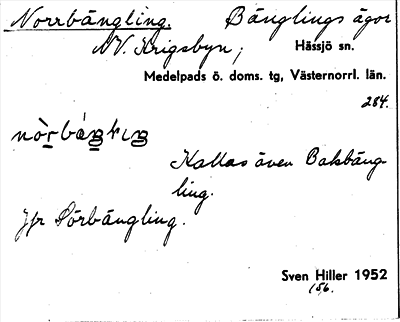 Norrbängling. Bänglings ägor
NV. Krigsbyn, Hässjö sn.
Medelpads ö. doms. tg, Västernorrl. län.
284.
Kallas även Baksbäng-
ling.
Jfr Sörbängling.
Sven Hiller 1952
156.